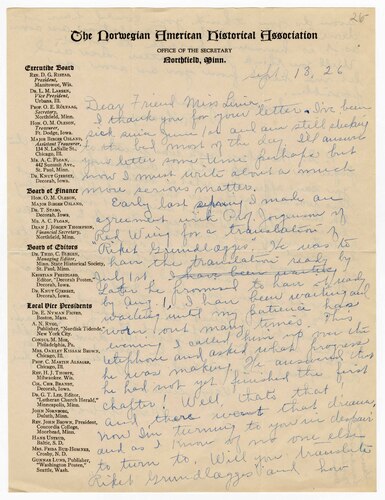 26
The Norwegian American Historical Association
OFFICE OF THE SECRETARY
Northfield, Minn.
Executive Board
REV. D. G. RISTAD,
President,
Manitowoc, Wis.
DR. L. M. LARSEN,
Vice President,
Urbana, Ill.
PROF. O. E. RÖLVAAG,
Secretary,
Northfield, Minn.
HON. O. M. OLESON,
Treasurer,
Ft. Dodge, Iowa.
MAJOR BIRGER OSLAND,
Assistant Treasurer,
134 N. LaSalle St.,
Chicago, Ill.
MR. A. C. FLOAN,
442 Summit Ave.,
St. Paul, Minn.
DR. KNUT GJERSET,
Decorah, Iowa.
Board of Finance
HON. O. M. OLESON,
MAJOR BIRGER OSLAND,
DR. T. STABO,
Decorah, Iowa.
MR. A. C. FLOAN,
DEAN J. JÖRGEN THOMPSON,
Financial Secretary,
Northfield, Minn.
Board of Editors
DR. THEO. C. BLEGEN,
Managing Editor,
Minn. State Historical Society,
St. Paul, Minn.
KRISTIAN PRESTGARD,
Editor, "Decorah Posten,"
Decorah, Iowa.
DR. KNUT GJERSET,
Decorah, Iowa.
Local Vice Presidents
DR. E. NYMAN FIGVED,
Boston, Mass.
A. N. RYGG,
Publisher, "Nordisk Tidende,"
New York City.
CONSUL M. MOE,
Philadelphia, Pa.
MRS. OAKLEY KISSAM BROWN,
Chicago, Ill.
PROF. C. MARTIN ALSAGER,
Chicago, Ill.
REV. H. J. THORPE,
Milwaukee, Wis.
COL. CHR. BRANDT,
Decorah, Iowa.
DR. G. T. LEE, Editor,
"Lutheran Church Herald,"
Minneapolis, Minn.
JOHN NORNBORG,
Duluth, Minn.
REV. JOHN BROWN, President,
Concordia College,
Moorhead, Minn.
HANS USTRUD,
Baltic, S. D.
MRS. FREMA EIDE HOMNES,
Crosby, N. D.
GUNNAR LUND, Publisher
"Washington Posten,"
Seattle, Wash.
Sept 13, 26
Dear Friend Miss
I thank you for your letter. I've been
sick since June 1st and am still sticking
to the bed most of the day. I'll answer
your letter some time perhaps but
now I must write about a much
more serious matter.
Early last spring I made an
agreement with Prof. Jorgenson of
Red Wing for a translation of
"Riket Grundlægges". He was to
have the translation ready by
July 1st. I have been waiting
Later he promised to have it ready
by Aug. 1. I have been waiting and
waiting until my patience was
worn out many times. This
evening I called him up over the
telephone and asked what progress
he was making. He answered that
he had not yet finished the first
chapter! Well, that's that,
and there went that dream,
now I'm turning to you in despair
and as I know of no one else
to turn to. Will you translate
Riket Grundlægges and how